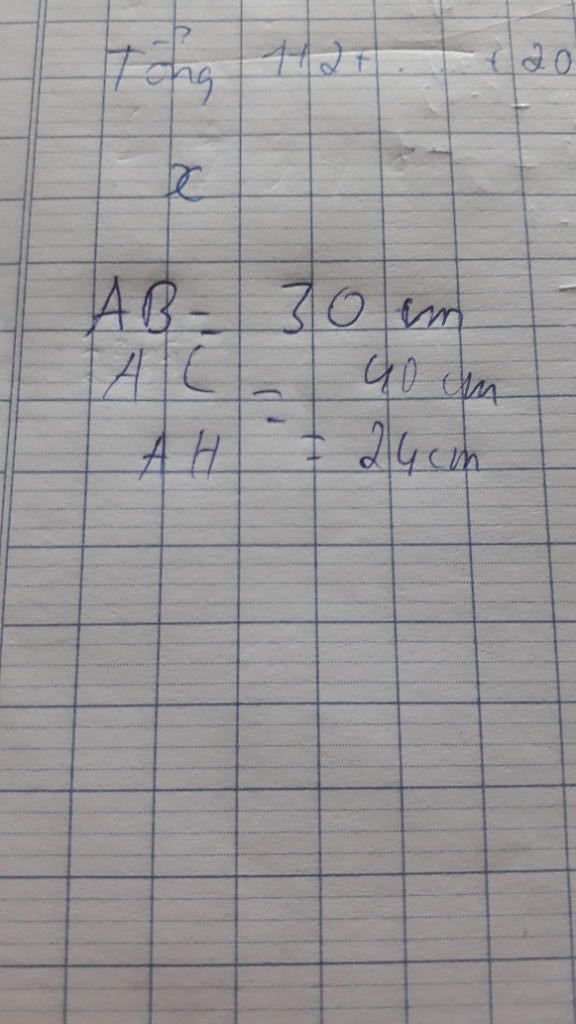 Tổng 1+2+.....+20
x
AB = 30 cm
AC = 40 cm
AH = 24cm